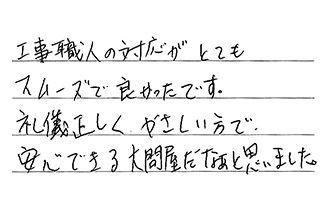 工事職人の対応がとても
スムーズで良かったです。
礼儀正しくやさしい方で、
安心できる大問屋だなあと思いました。